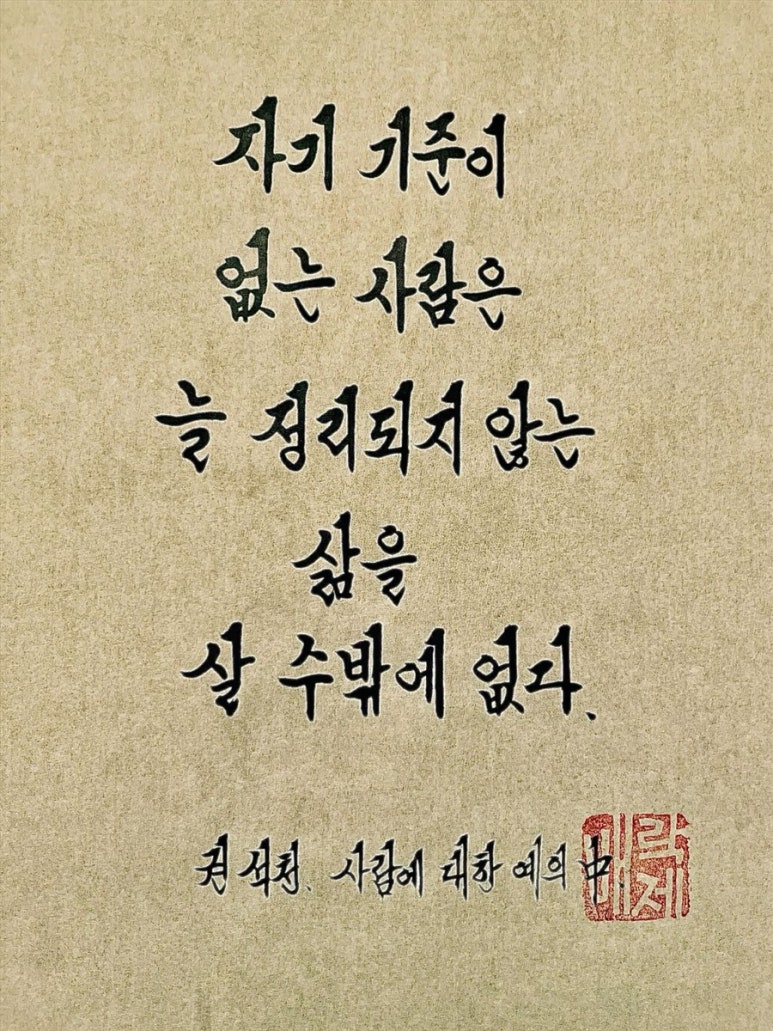 자기 기준이
없는 사람은
늘 정리되지 않는
삶을
살 수밖에 없다.
권석천. 사람에 대한 예의 中.